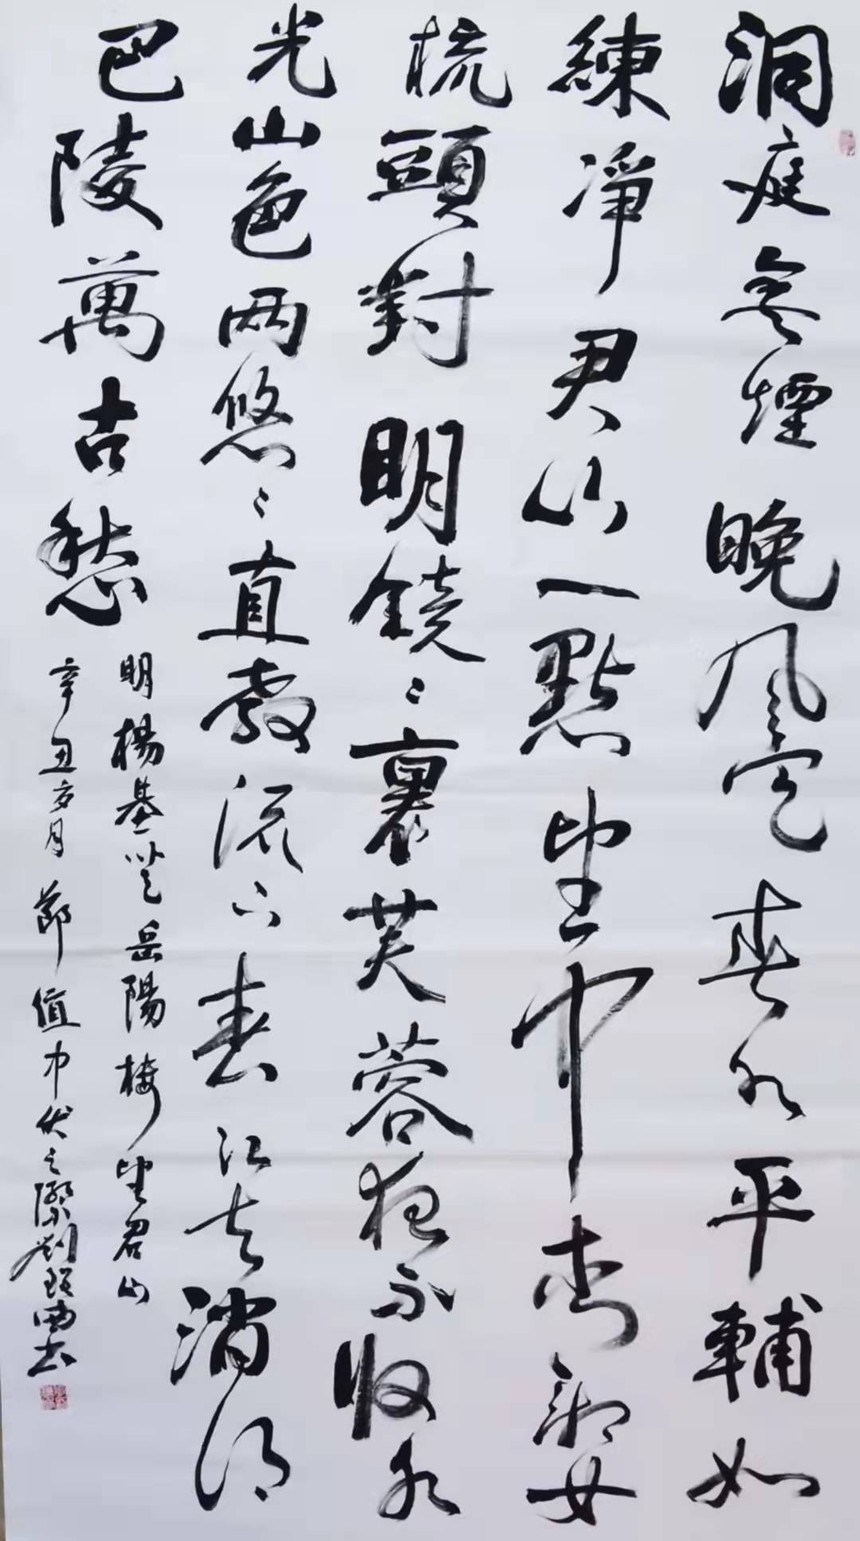 洞庭無煙晚風定春水平輔如
練凈君山一點望中青湘女
梳頭對明鏡〻裏芙蓉夜不收水
光山色两悠〻直教流下春江去消得
巴陵萬古愁
明楊基登岳陽樓望君山
辛丑月節值中伏之際劉書